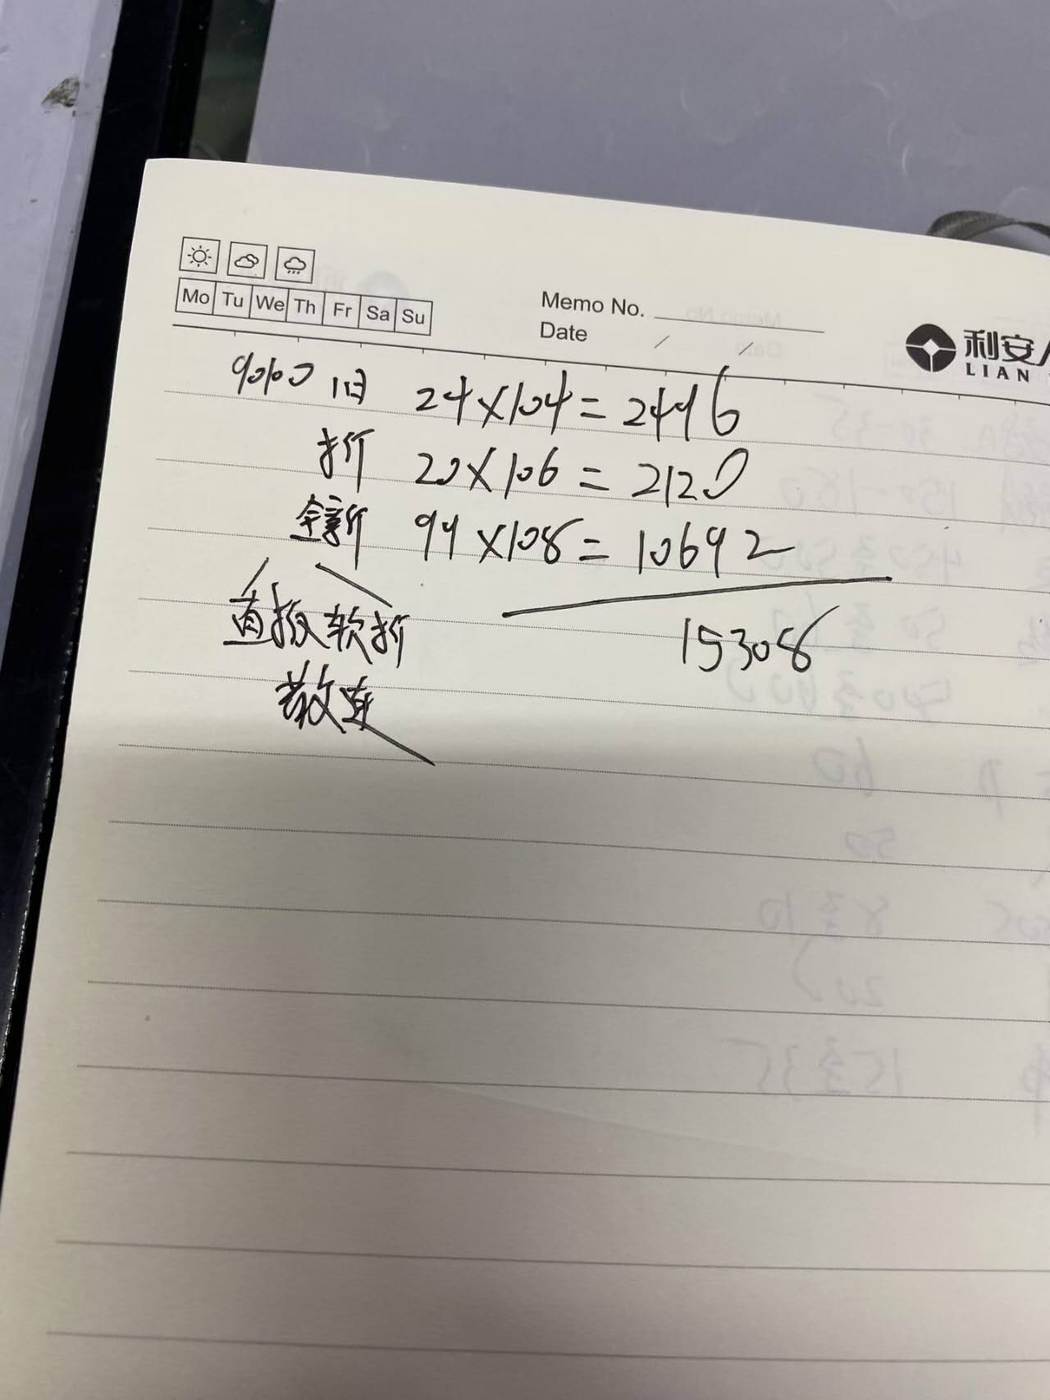 Mo Tu We Th Fr Sa Su
Memo No.
Date / /
利安人
LIAN
9060旧 24×104=2496
折 20×106=2120
全新 99×108=10692
直板 软折
散连
15308